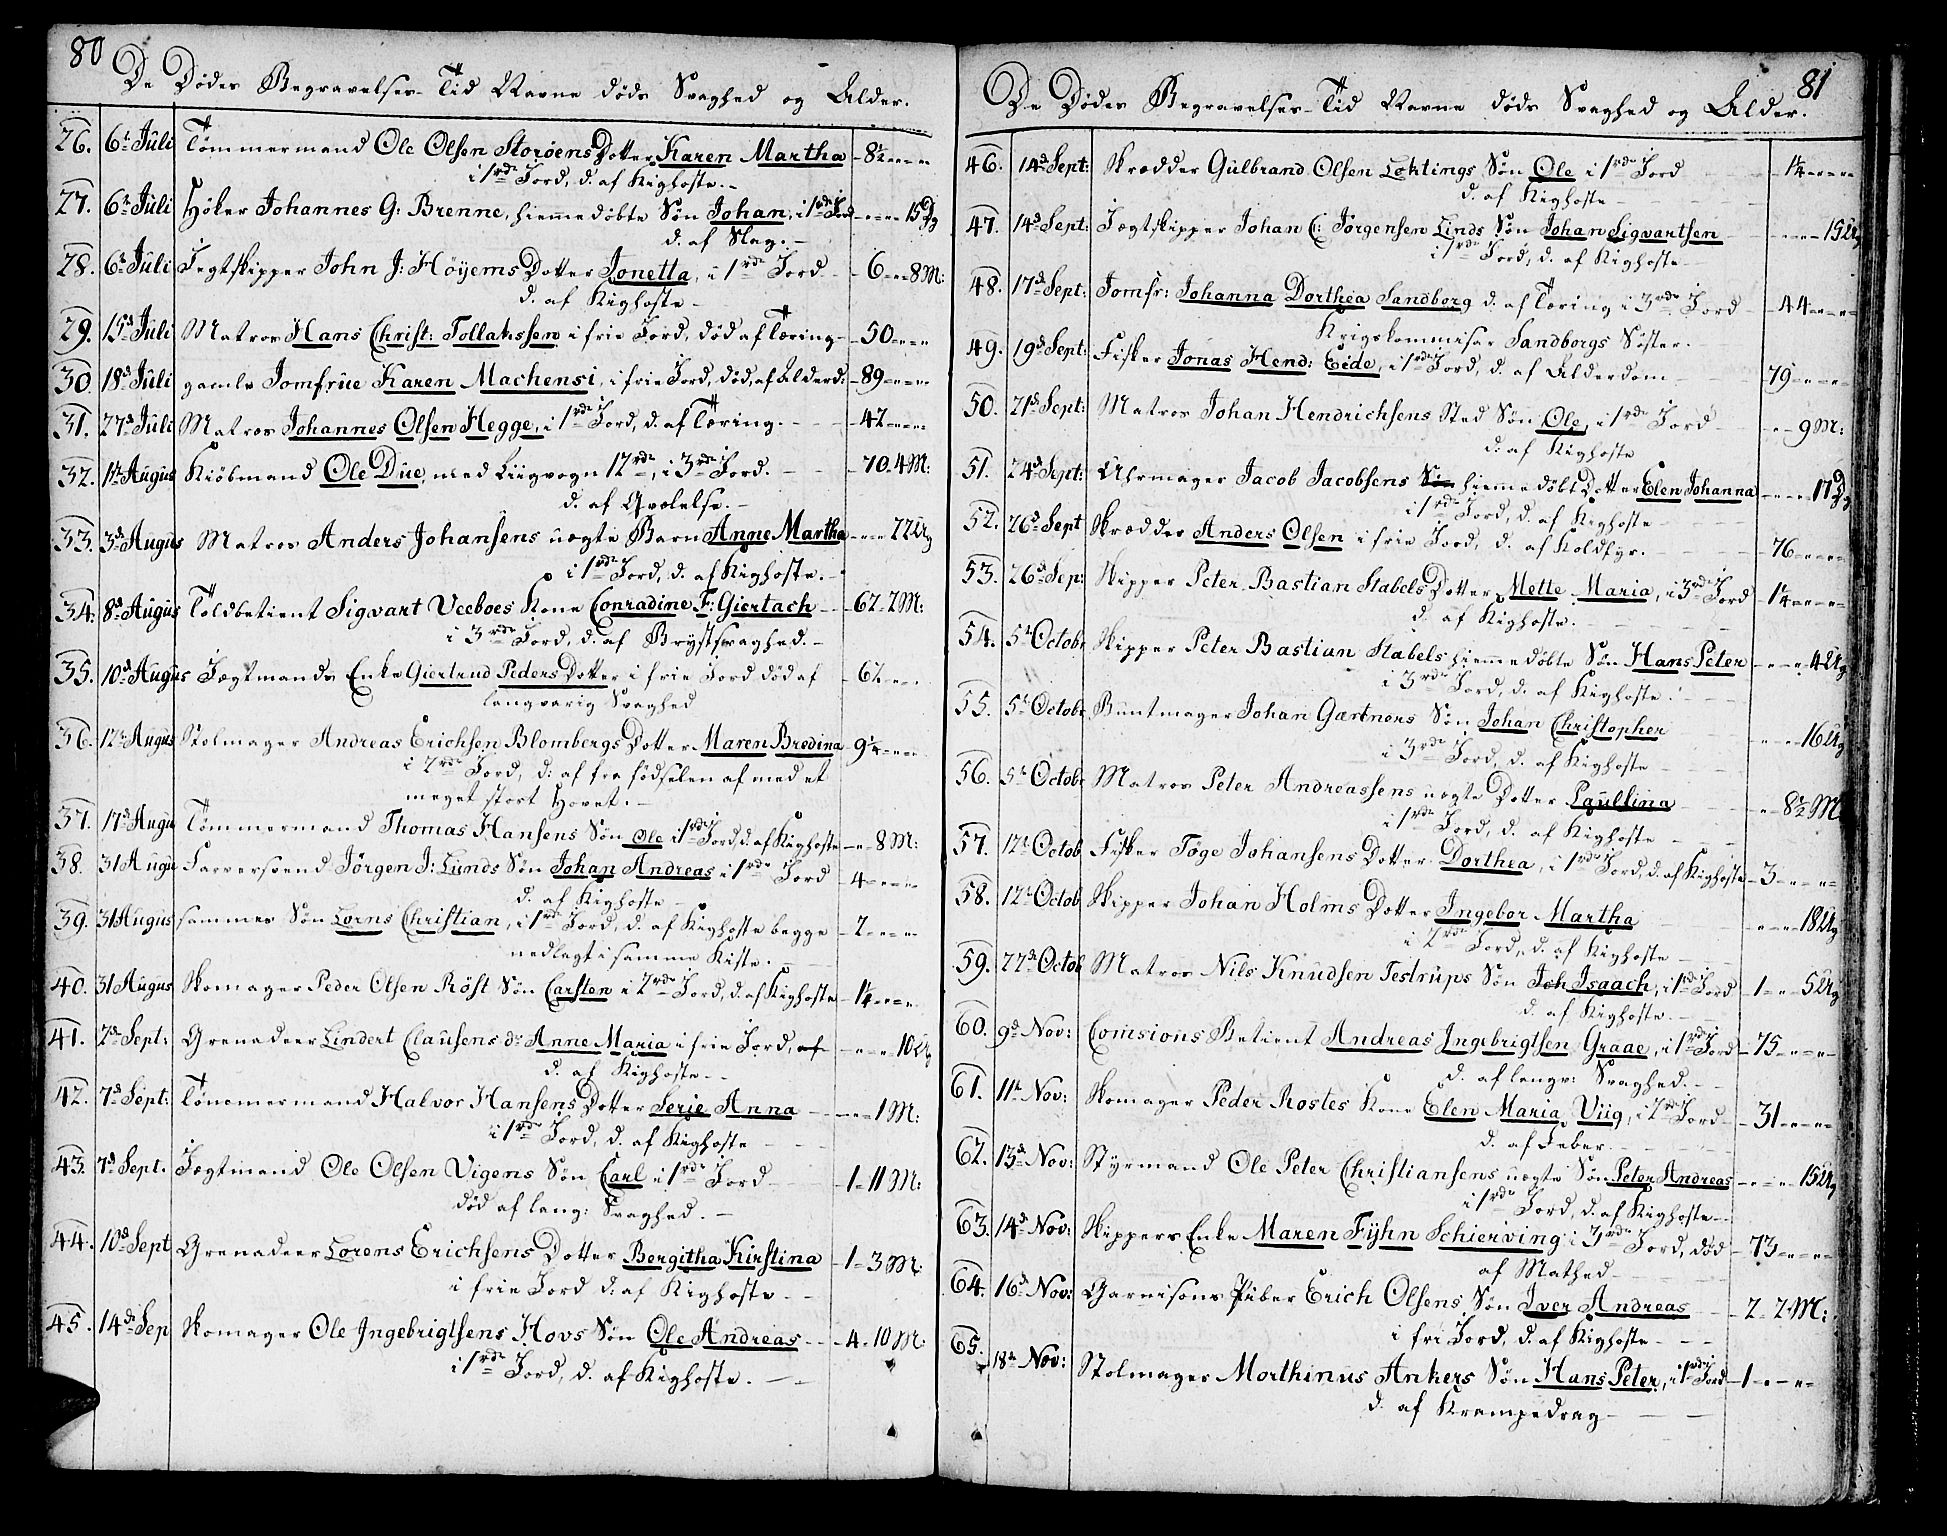 80
De Dødes Begravelses-Tid Navne døds Svaghed og Alder.
26. 6t Juli Tømmermand Ole Olsen Storøens Dotter Karen Martha 8½
i 1rde Jord, d. af Kighoste.
27. 6t Juli Høker Johannes G: Brenne, hiemmedøbte Søn Johan, i 1rde Jord 15 Dg
d. af Slag.
28. 6t Juli Jegtskipper John J: Høyems Dotter Jonetta, i 1rde Jord 6 8 M:
d. af Kighoste
29. 15d Juli Matros Hans Christ: Tollakssen i frie Jord, død af Tæring 50
30. 18d Juli gamle Jomfrue Karen Machensi, i frie Jord, død, af Alderd: 89
31. 27d Juli Matros Johannes Olsen Hegge, i 1rde Jord, d. af Tæring. 42
32. 1t Augus Kiøbmand Ole Due, med Liigvogn 12rd, i 3rde Jord. 70. 4 M:
d. af Qvælelse.
33. 3d Augus Matros Anders Johansens uægte Barn Anne Martha 22 Ug
i 1rde Jord, d. af Kighoste.
34: 8d Augus Toldbetient Sigvart Veeboes Kone Conradine F: Giertach 62 2 M:
i 3rde Jord, d. af Brystsvaghed.
35. 10d Augus Jægtmands Enke Giertrud Peders Dotter i frie Jord død af 62
langvarig Svaghed
36. 12t Augus Stolmager Andreas Erichsen Blombergs Dotter Maren Bredina 9¼
i 2rde Jord, d: af fra fødselen af med et
meget stort Hovet.
37. 17d Augu Tømmermand Thomas Hansens Søn Ole i 1rde Jord, d. af Kighoste 8 M:
38. 31 Augu Farversvend Jörgen J: Lunds Søn Johan Andreas i 1rde Jord 4
d. af Kighoste
39. 31 Augus sammes Søn Lorns Christian, i 1rde Jord, d. af Kighoste begge 2
nedlagt i samme Kiste.
40. 31 Augus Skomager Peder Olsen Röst Søn Carsten i 2rde Jord, d. af Kighoste 1¼
41. 2d Sept: Grenadeer Lindert Clausens dr Anne Maria i frie Jord, af 10 Ug
d. af Kighoste
42. 7d Sept: Tønmermand Halvor Hansens Dotter Serie Anna 1 M:
i 1rde Jord, d. af Kighoste
43. 7d Sept. Jægtmand Ole Olsen Vigens Søn Carl i 1rde Jord 1 11 M:
død af lang: Svaghed.
44. 10d Sept Grenadeer Lorens Erichsens Dotter Bergitha Kirstina 1 3 M:
i frie Jord d: af Kighoste
45. 14d Sep Skomager Ole Ingebrigtsens Hovs Søn Ole Andreas 4 10 M:
i 1rde Jord, d. af Kighoste.
81
De Dødes Begravelses-Tid Navne døds Svaghed og Alder.
46. 14d Sept: Skrædder Gulbrand Olsen Løktings Søn Ole i 1rde Jord 1¼
d. af Kighoste
47. 14d Sept: Jægtskipper Johan C: Jörgensen Linds Søn Johan Sigvartsen 15 Ug
i 1rde Jord, d. af Kighoste
48. 17d Sept: Jomfr: Johanna Dorthea Sandborg d. af Tæring i 3rde Jord 44
Krigskommisær Sandborgs Søster.
49. 19d Sept: Fisker Jonas Hend: Eide, i 1rde Jord, d. af Alderdom 79
50. 21d Sept: Matros Johan Hendrichsens Sted Søn Ole, i 1rde Jord 9 M:
d. af Kighoste
51. 24d Sept: Uhrmager Jacob Jacobsens Søn hiemmedøbt Dotter Elen Johanna 17 Dg
i 1rde Jord, d. af Kighoste
52. 26d Sept Skrædder Anders Olsen i frie Jord, d. af Koldfyr. 76
53. 26d Sep: Skipper Peter Bastian Stabels Dotter Mette Maria, i 3rde Jord 1¼
d. af Kighoste.
54. 5t Octobr Skipper Peter Bastian Stabels hiemmedøbte Søn Hans Peter 4 Ug
i 3rde Jord, d. af Kighoste.
55. 5t Octobr Buntmager Johan Gærtners Søn Johan Christopher 16 Ug
i 3rde Jord, d. af Kighoste
56. 5t Octobr Matros Peter Andreassens uægte Dotter Paullina 8½ M
i 1rde Jord, d. af Kighoste
57. 12t Octob Fisker Töge Johansens Dotter Dorthea, i 1rde Jord, d. af Kighoste 3
58. 12t Octob Skipper Johan Holms Dotter Ingebor Martha 18 Ug
i 2rde Jord, d. af Kighoste
59. 27d Octob Matros Nils Knudsen Testrups Søn Joh Isaach, i 1rde Jord 1 5 Ug
d. af Kighoste.
60. 9d Nov: Comsions Betient Andreas Ingebrigtsen Graae, i 1rde Jord 75
d. af langv: Svaghed.
61. 11t Nov: Skomager Peder Rostes Kone Elen Maria Viig, i 2rde Jord 31
d. af Feber.
62. 13d Nov: Styrmand Ole Peter Christiansens uægte Søn Peter Andreas 15 Ug
i 1rde Jord, d. af Kighoste
63. 14d Nov: Skippers Enke Maren Fyhn Schierving i 3rde Jord, død 73
af Mathed
64. 16d Nov: Garnisons Piber Erich Olsens Søn Iver Andreas 2 2 M:
i fri Jord, d. af Kighoste
65. 18t Nov: Stolmager Morthinus Ankers Søn Hans Peter, i 1rde Jord 1
d. af Krampedrag